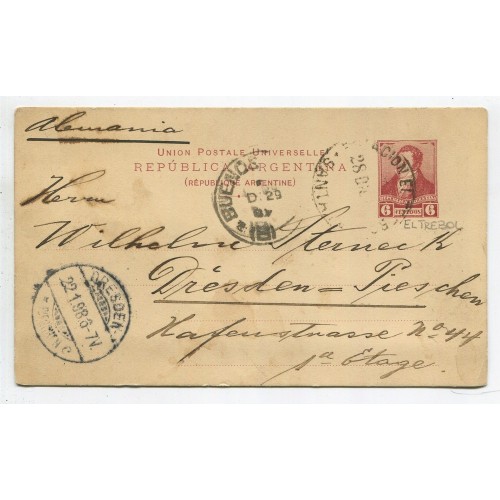 Alemania
UNION POSTALE UNIVERSELLE
REPÚBLICA ARGENTINA
(RÉPUBLIQUE ARGENTINE)
6 CENTAVOS 6
EL TREBOL
BUENOS
D. 29
97
Herrn
Wilhelm Sterneck
Dresden-Pieschen
Hafenstrasse No 44
1a Etage.
DRESDEN
22.1.98.6-7V.